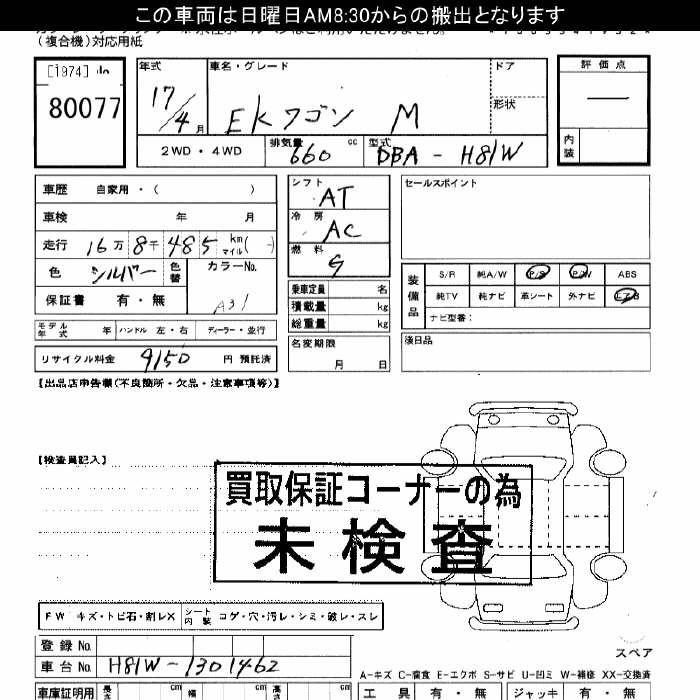 この車両は日曜日AM8:30からの搬出となります
(複合機)対応用紙
[1974]
80077
年式
17/4月
車名・グレード
EKワゴン M
ドア
形状
評価点
—
内装
2WD・4WD
排気量
660 cc
型式
DBA-H81W
車歴 自家用・( )
車検 年 月
走行 16万8千485 km マイル( )
色 シルバー 色替
カラーNo. A31
保証書 有・無
モデル年式 年 ハンドル 左・右 ディーラー・並行
リサイクル料金 9150 円 預託済
シフト
AT
冷房
AC
燃料
G
乗車定員 名
積載量 kg
総重量 kg
名変期限
月 日
セールスポイント
装備品
S/R 純A/W P/S P/W ABS
純TV 純ナビ 革シート 外ナビ エアB
ナビ型番:
後日品
【出品店申告欄(不良箇所・欠品・注意事項等)】
【検査員記入】
買取保証コーナーの為
未検査
FW キズ・トビ石・割レX シート内装 コゲ・穴・汚レ・シミ・破レ・スレ
登録No.
車台No. H81W-1301462
スペア
A-キズ C-腐食 E-エクボ S-サビ U-凹ミ W-補修 XX-交換済
車庫証明用 長さ cm 幅 cm 高さ cm
工具 有・無 ジャッキ 有・無